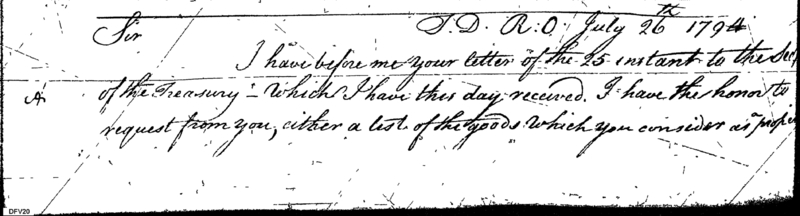 T.D. R.O. July 26th 1794
Sir
I have before me your letter of the 25 instant to the Sec
of the Treasury - Which I have this day received. I have the honor to
request from you, either a list of the goods which you consider as proper
DFV20